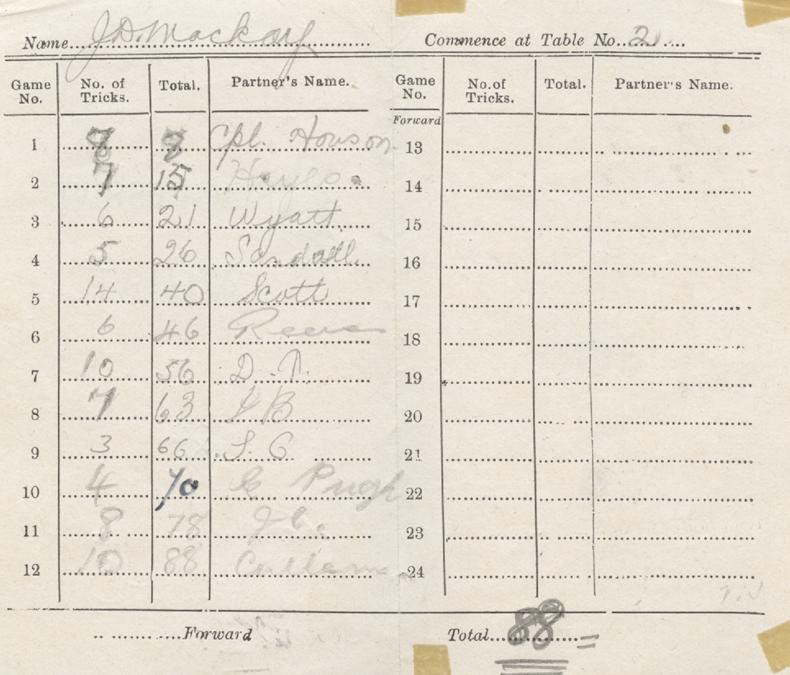 Name J D Mackay Commence at Table No. 2
Game No. No. of Tricks. Total. Partner's Name. Game No. No. of Tricks. Total. Partner's Name.
Forward
1 8 8 Cpl. Howson 13
2 7 15 14
3 6 21 Wyatt 15
4 5 26 Sandall 16
5 14 40 Scott 17
6 6 46 Reeves 18
7 10 56 D. 19
8 7 63 20
9 3 66 21
10 4 70 Pugh 22
11 8 78 23
12 10 88 Cullam 24
Forward Total 88